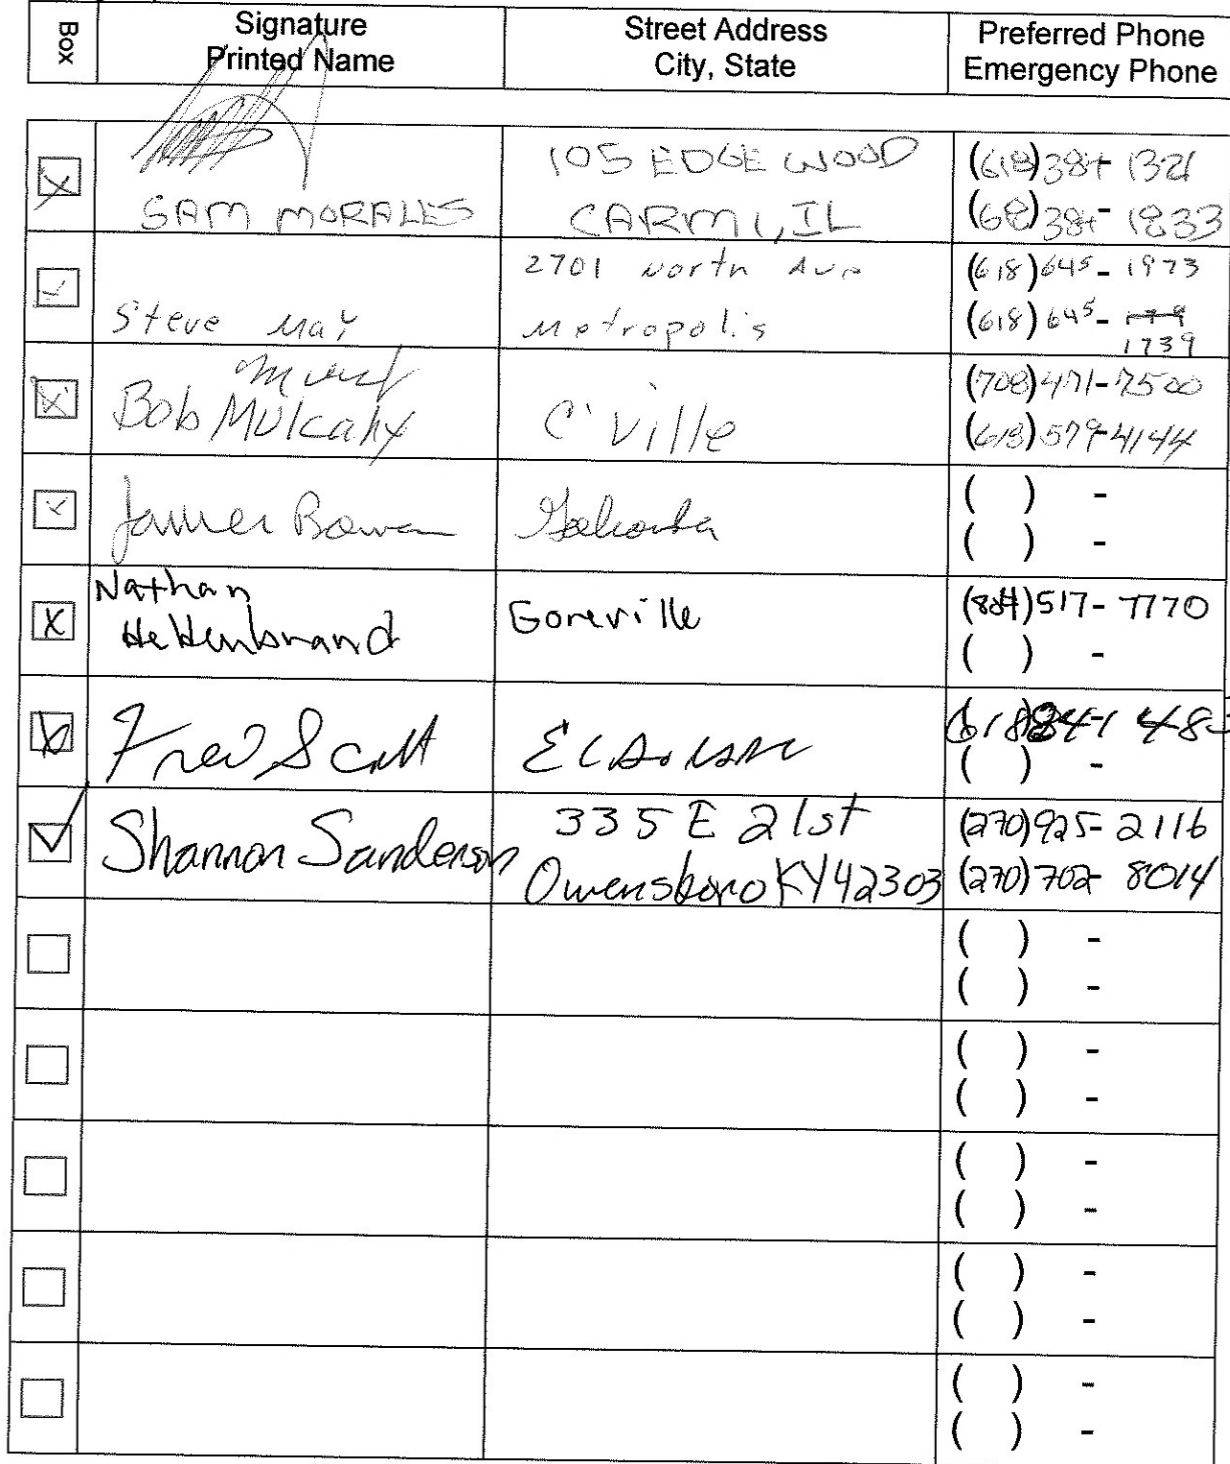 Box
Signature
Printed Name
Street Address
City, State
Preferred Phone
Emergency Phone
SAM MORALES
105 EDGE WOOD
CARMI, IL
(618) 384- 1321
(618) 384- 1833
Steve May
2701 North Ave
Metropolis
(618) 645- 1973
(618) 645-
1739
Bob Mulcahy
C'Ville
(708) 471-7500
(618) 579-4144
James Bowen
( ) -
( ) -
Nathan
Goreville
517-7770
( ) -
Fred Scott
( ) -
Shannon Sanderson
335 E 21st
Owensboro KY 42303
(270) 925- 2116
(270) 702- 8014
( ) -
( ) -
( ) -
( ) -
( ) -
( ) -
( ) -
( ) -
( ) -
( ) -